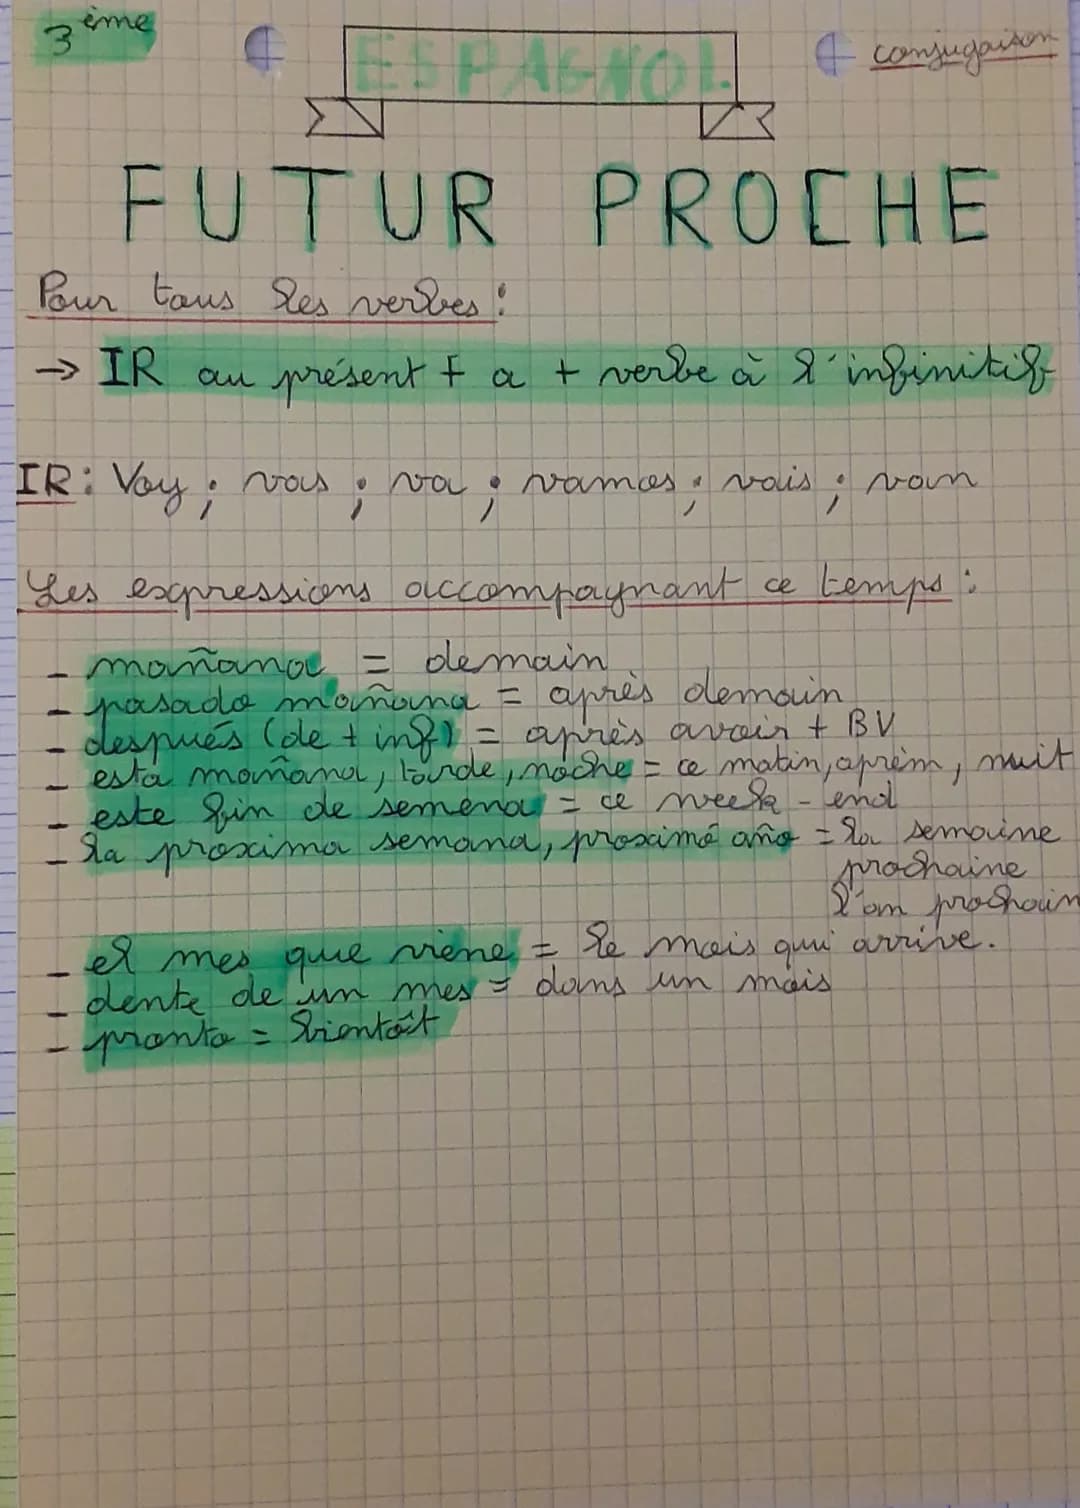 3ème
ESPAGNOL
conjugaison
FUTUR PROCHE
Pour tous les verbes :
→ IR au présent + a + verbe à l'infinitif
IR : Voy ; vas ; va ; vamos ; vais ; van
Les expressions accompagnant ce temps :
- mañana = demain
- pasado mañana = après demain
- después (de + inf) = après avoir + BV
- esta mañana, tarde, noche = ce matin, aprèm, nuit
- este fin de semena = ce week-end
- la proxima semana, proximo año = la semaine
prochaine
l'an prochain
- el mes que viene = le mois qui arrive.
- dente de un mes = dans un mois
- pronto = bientôt